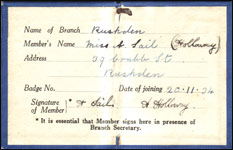 Name of Branch Rushden
Member's Name Miss A. Sail (Holloway)
Address 39 Crabb St.
Rushden
Badge No. Date of joining 20-11-34
Signature of Member * A Holloway
* It is essential that Member signs here in presence of
Branch Secretary.